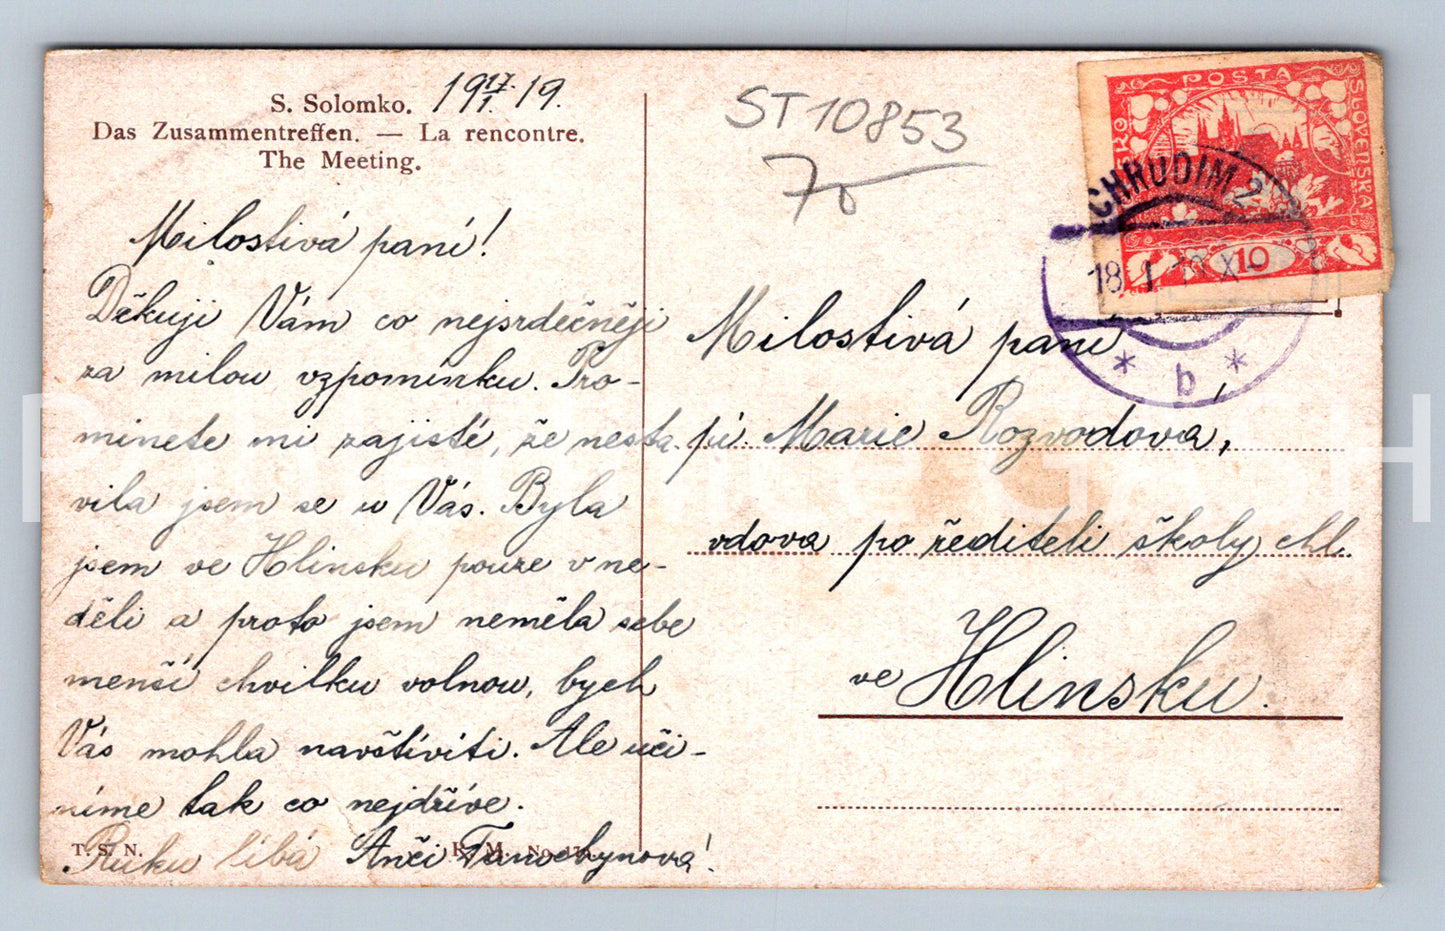 S. Solomko. 19 17/1. 19.
Das Zusammentreffen. — La rencontre.
The Meeting.
Milostivá paní!
Děkuji Vám co nejsrdečněji
za milou vzpomínku. Pro-
minete mi zajisté, že nesta-
vila jsem se u Vás. Byla
jsem ve Hlinsku pouze v ne-
děli a proto jsem neměla sebe
menší chvilku volnou, bych
Vás mohla navštíviti. Ale uči-
níme tak co nejdříve.
Ruku líbá Anči
T. S. N. K. M. No.
ST10853
70
POSTA
SLOVENSKA
10
CHRUDIM 2
18 I 19 X
* b *
Milostivá paní
pí. Marie Rozvodová,
vdova po řediteli školy chl.
ve Hlinsku.